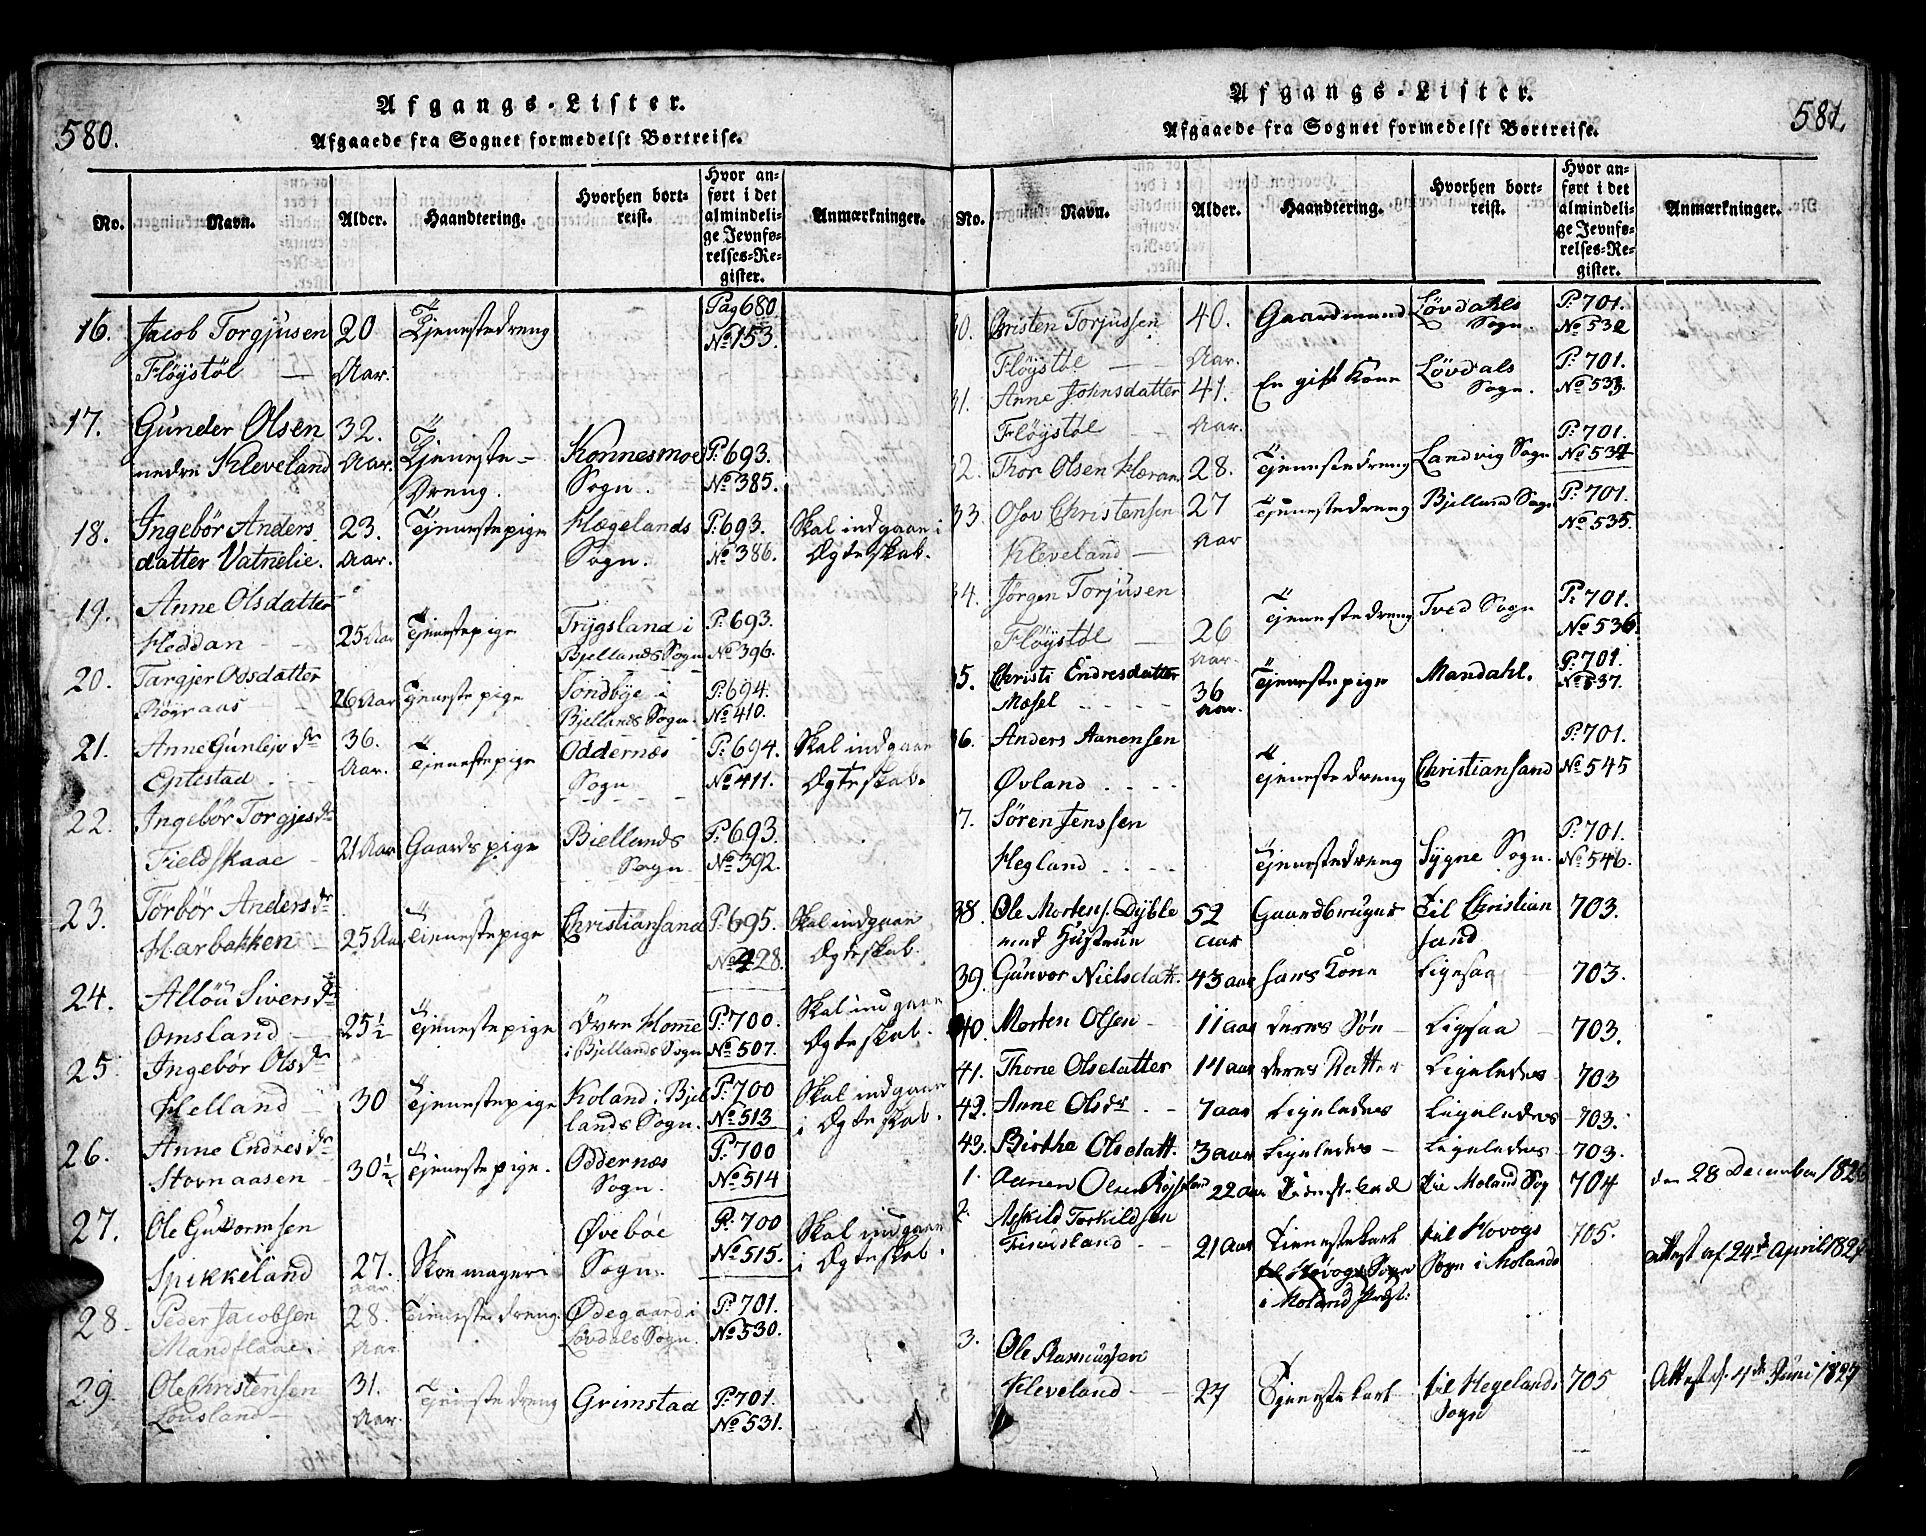 580.
Afgangs-Lister.
Afgaaede fra Sognet formedelst Bortreise.
No.
Navn.
Alder.
Haandtering.
Hvorhen bort-
reist.
Hvor an-
ført i det
almindeli-
ge Jevnfø-
relses-Re-
gister.
Anmærkninger.
16. Jacob Torgjusen 20 Tjenestedreng Pag 680
Fløystøl Aar. No 153.
17. Gunder Olsen 32. Tjeneste- Konnesmoe P. 693.
nedre Kleveland Aar. Dreng. Sogn. No 385.
18. Ingebør Anders 23. Tjenestepige Hægelands P. 693. Skal indgaae i
datter Vatnelie. Aar. Sogn. No 386. Ægteskab.
19. Anne Olsdatter Tjenestepige Trygsland i P. 693.
Heddan 25 Aar Bjellands Sogn No 396.
20. Targjer Olsdatter 26 Aar Tjenestepige Sondbye i P. 694.
Røgraas Bjellands Sogn. No 410.
21. Anne Gunlejvdr 36. Tjenestepige Oddernæs P. 694. Skal indgaae
Eptestad Aar. Sogn No 411. Ægteskab.
22. Ingebør Torgjesdr Biellands P. 693
Fieldskaae 21 Aar Gaardspige Sogn. No 392.
23. Torbør Andersdr Tienestepige Christiansand P. 695. Skal indgaae
Harbakken 25 Aar No 428. Ægteskab.
24. Alloü Siversdr Tjenestepige øvre Home P. 700. Skal indgaae
Omsland 25½ i Bjellands Sogn No 507. Ægteskab.
25. Ingebør Olsdr Tjenestepige Koland i Bjel P. 700 Skal indgaae
Helland 30 lands Sogn. No 513 i Ægteskab.
26. Anne Endresdr 30½ Tjenestepige. Oddernæs P. 700
Stovnaasen Sogn. No 514
27. Ole Guttormsen Øvebøe P. 700 Skal indgaae
Spikkeland 27. Skoemager Sogn. No 515. i Ægteskab.
28. Peder Jacobsen 28. Tienestedreng. Ødegaard i P. 701.
Mandflaae. Aar. Løvdals Sogn. No 530.
29. Ole Christensen 31. Tjenestedreng Grimstad P. 701.
Lousland Aar. No 531.
Afgangs-Lister.
581.
Afgaaede fra Sognet formedelst Bortreise.
No.
Navn.
Alder.
Haandtering.
Hvorhen bort-
reist.
Hvor an-
ført i det
almindeli-
ge Jevnfø-
relses-Re-
gister.
Anmærkninger.
30. Christen Torjussen 40. Gaardmand Løvdahls P. 701.
Fløystøl Aar. Sogn. No 532
31. Anne Johnsdatter 41. En gift Kone Løvdals P. 701.
Fløystøl Aar. Sogn. No 533.
32. Thor Olsen Hæraas 28. Tjenestedreng Landvig Sogn P. 701. No 534
33. Osov Christensen 27 Tjenestedreng Bjelland Sogn P. 701.
Kleveland Aar No 535.
34. Jørgen Torjusen Tjenestedreng Tved Sogn P. 701.
Fløystøl 26 Aar. No 536.
35. Christi Endresdatter 36 Tjenestepige Mandahl. P. 701.
Mæsel Aar. No 537.
36. Anders Aanensen P. 701.
Øvland Tjenestedreng Christiansand No 545
37. Søren Jenssen P. 701.
Hegland Tjenestedreng Sygne Sogn. No 546.
38. Ole Mortens. Dyble 52 Gaardbruger Til Christian 703.
med Hustrue aar sand
39. Gunvor Nielsdatt. 43 aar hans Kone Ligesaa 703.
40. Morten Olsen 11 aar deres Søn Ligesaa 703.
41. Thone Olsdatter 14 aar deres Datter Ligeledes 703
42. Anne Olsdr 7 aar Ligeledes Ligeledes 703.
43. Birthe Olsdatt. 3 aar Ligeledes Ligeledes 703.
1. Aanen Olsen 22 aar til Moland Sog 704 den 28 December 182
2. Askild Terkildsen Tienestekarl til Hovogs 705.
21 Aar til Hovogs Sogn Sogn i Molands Attest af 24de April 1827
i Moland Præst:
3. Ole Rasmussen
Kleveland 27 Tjenestekarl til Hegelands 705 Attest d. 4de Juni 1827
Sogn